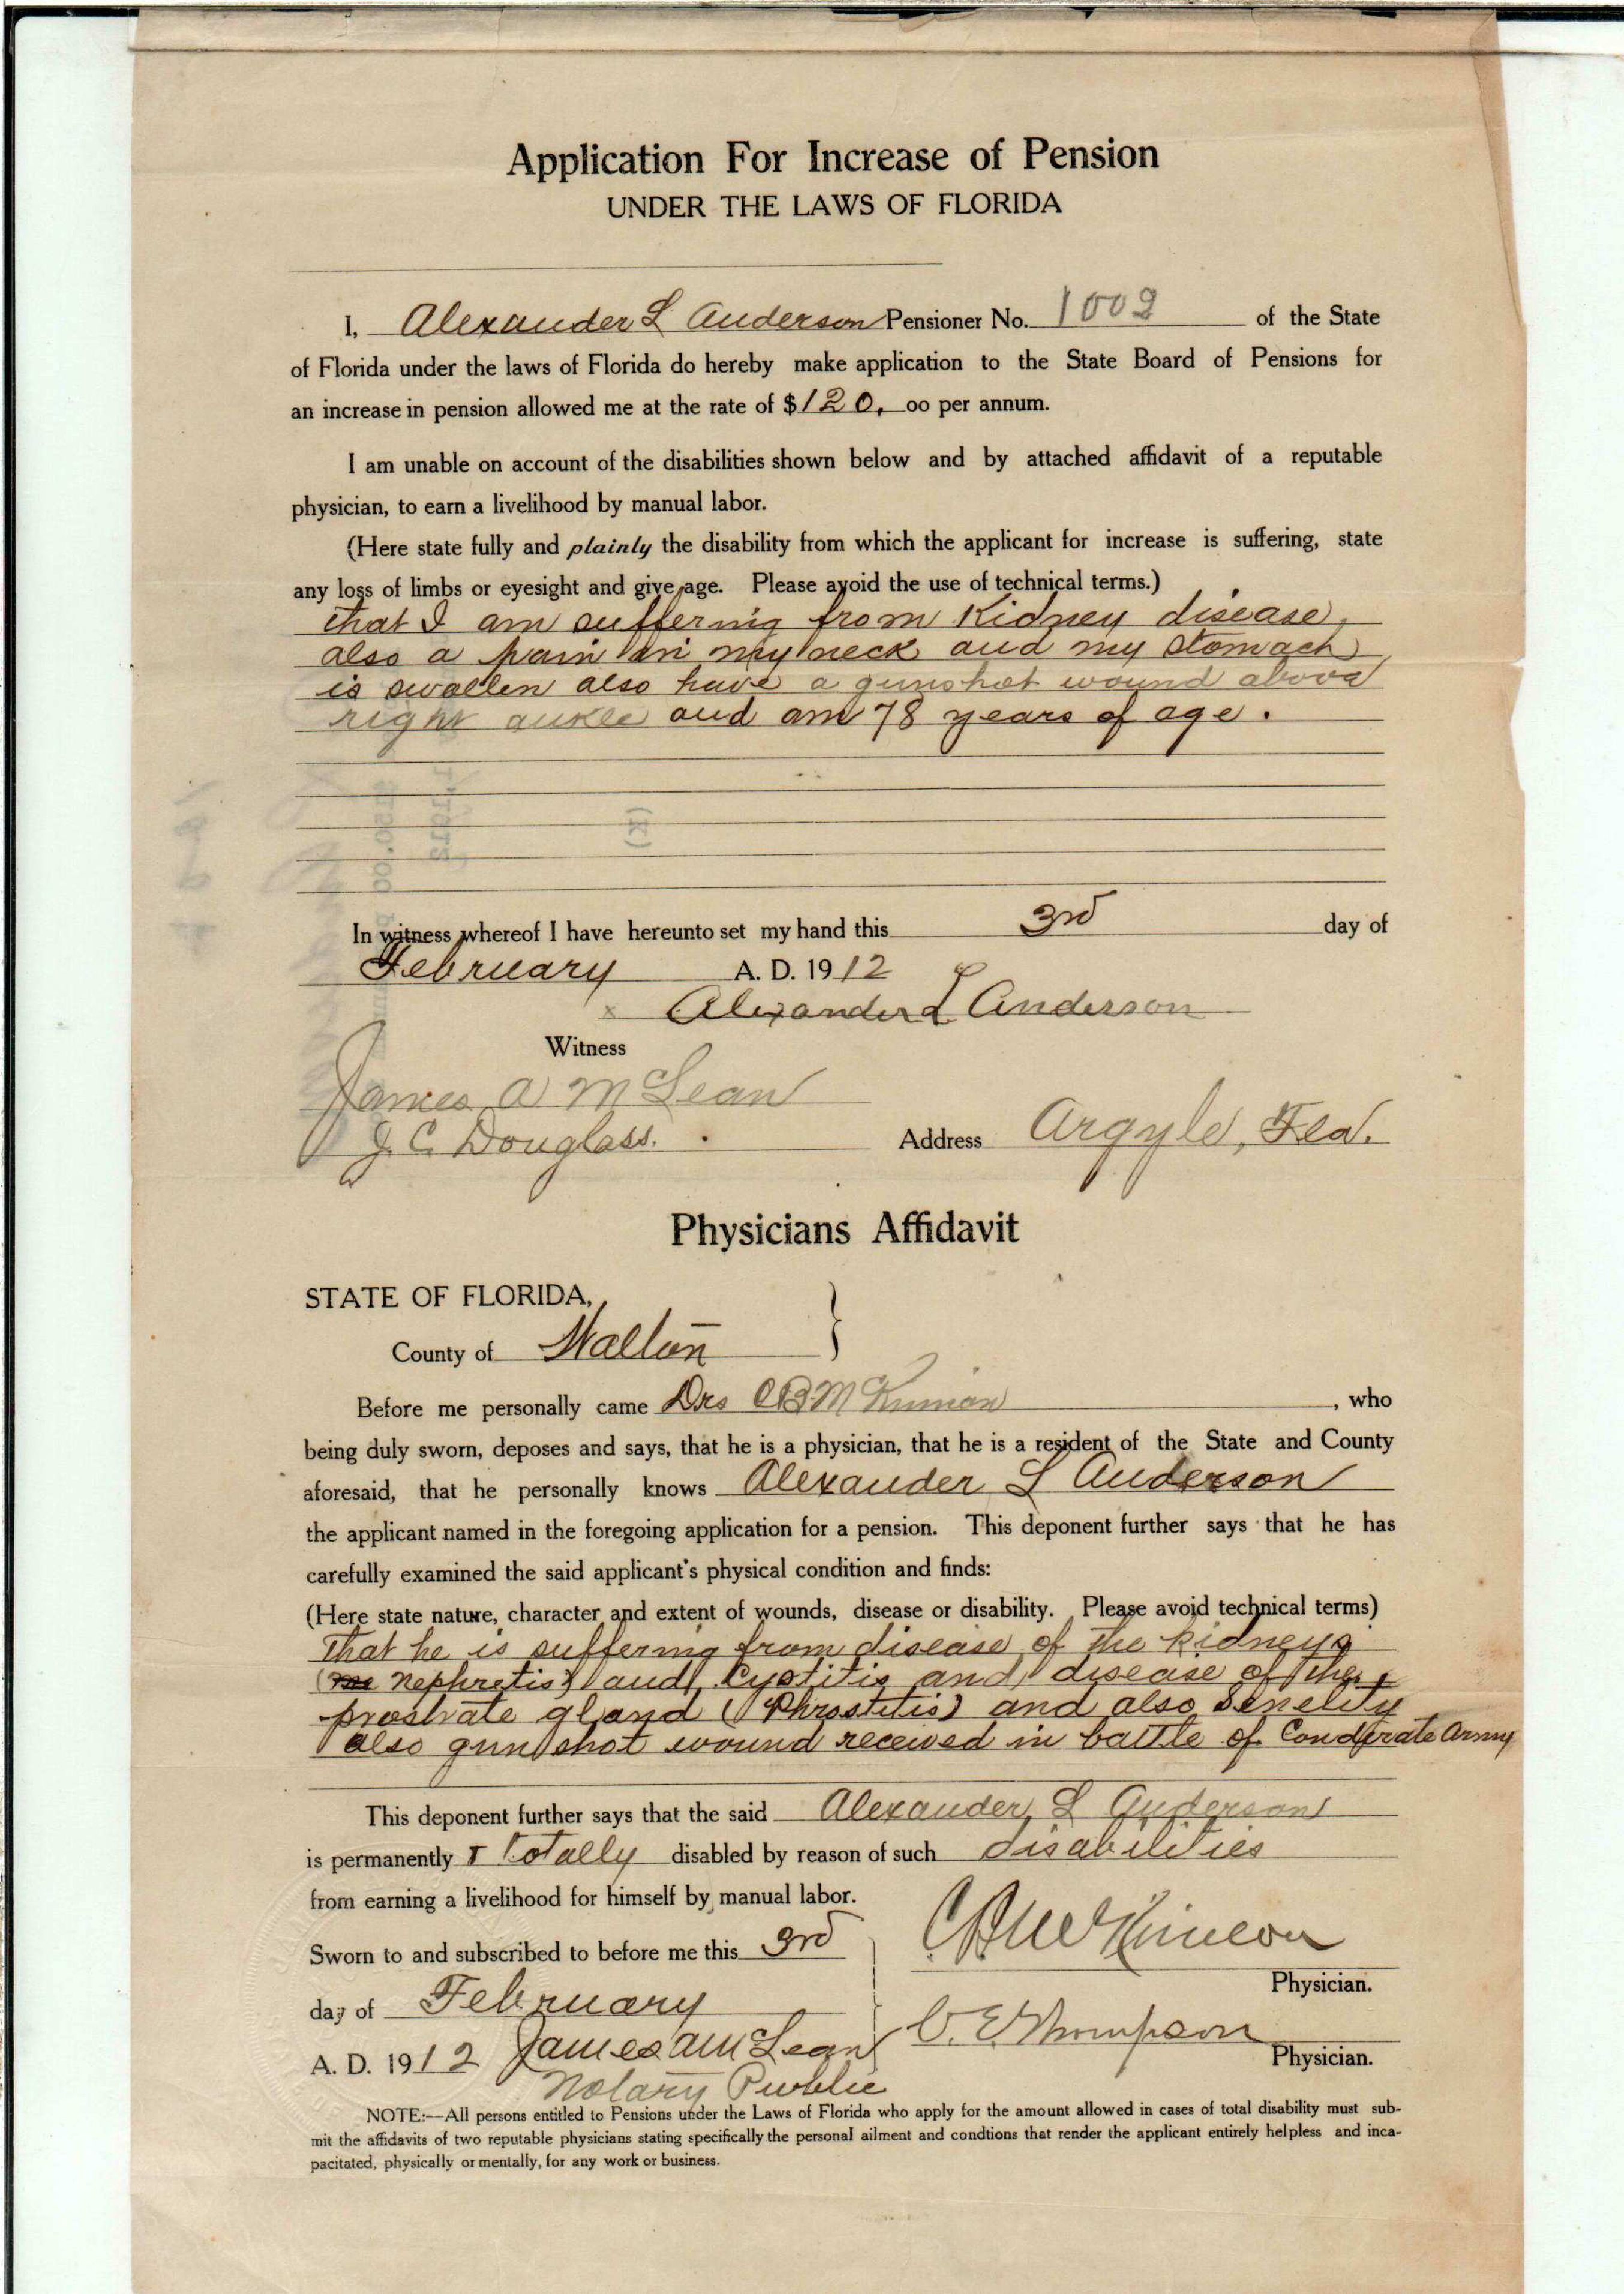 Application For Increase of Pension
UNDER THE LAWS OF FLORIDA
I, Alexander L Anderson Pensioner No. 1009 of the State
of Florida under the laws of Florida do hereby make application to the State Board of Pensions for
an increase in pension allowed me at the rate of $120. 00 per annum.
I am unable on account of the disabilities shown below and by attached affidavit of a reputable
physician, to earn a livelihood by manual labor.
(Here state fully and plainly the disability from which the applicant for increase is suffering, state
any loss of limbs or eyesight and give age. Please avoid the use of technical terms.)
that I am suffering from Kidney disease,
also a pain in my neck and my stomach
is swollen also have a gunshot wound above
right ankle and am 78 years of age.
In witness whereof I have hereunto set my hand this 3rd day of
February A. D. 1912
x Alexander L Anderson
Witness
James A McLean
J. C. Douglass.
Address Argyle, Fla.
Physicians Affidavit
STATE OF FLORIDA,
County of Walton
Before me personally came Drs C B McKinnon, who
being duly sworn, deposes and says, that he is a physician, that he is a resident of the State and County
aforesaid, that he personally knows Alexander L Anderson
the applicant named in the foregoing application for a pension. This deponent further says that he has
carefully examined the said applicant's physical condition and finds:
(Here state nature, character and extent of wounds, disease or disability. Please avoid technical terms)
that he is suffering from disease of the kidneys
(nephretis) and Cystitis and disease of the
prostrate gland (Phrostitis) and also Senelity
also gunshot wound received in battle of Conderate Army
This deponent further says that the said Alexander L Anderson
is permanently & totally disabled by reason of such disabilities
from earning a livelihood for himself by manual labor.
Sworn to and subscribed to before me this 3rd
day of February
A. D. 1912 James A McLean
Notary Public
C B McKinnon
Physician.
C. E. Thompson
Physician.
NOTE:—All persons entitled to Pensions under the Laws of Florida who apply for the amount allowed in cases of total disability must sub-
mit the affidavits of two reputable physicians stating specifically the personal ailment and condtions that render the applicant entirely helpless and inca-
pacitated, physically or mentally, for any work or business.